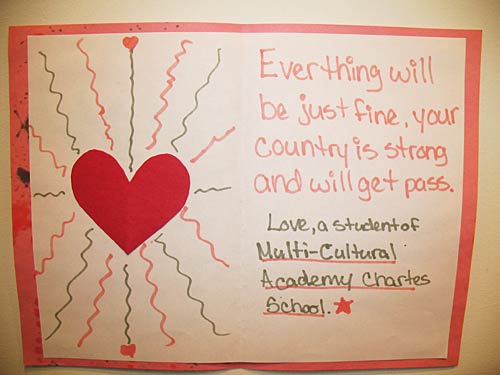 Everthing will
be just fine, your
country is strong
and will get pass.
Love, a student of
Multi-Cultural
Academy Chartes
School.